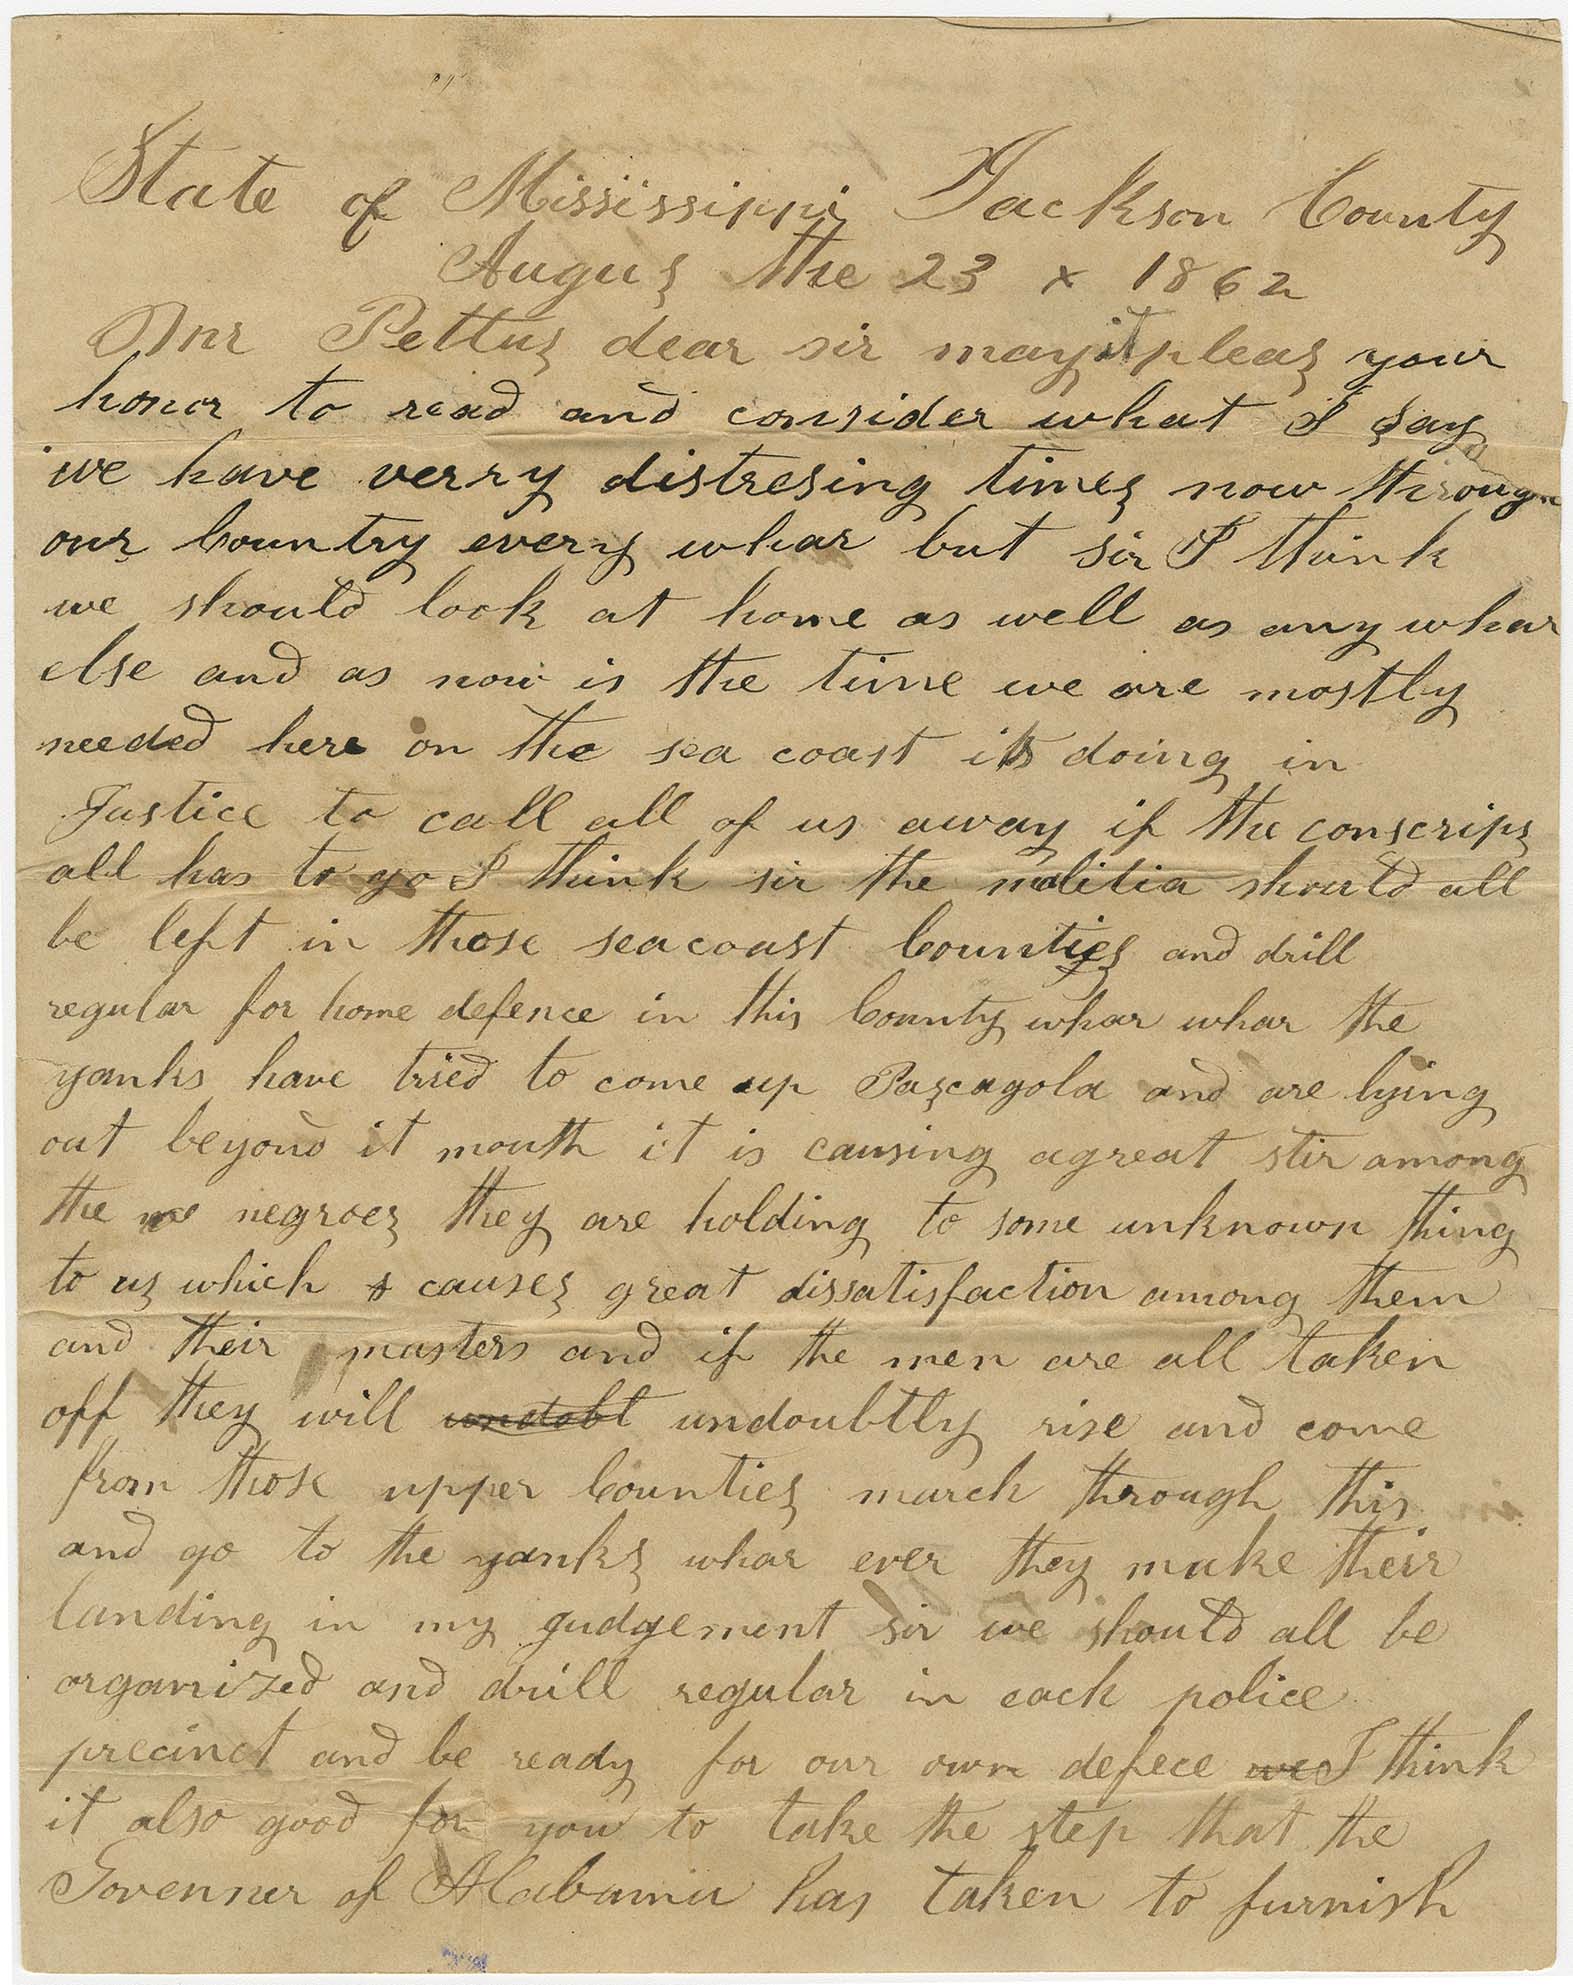 State of Mississippi Jackson County
Augus the 23 x 1862
Mr Pettus dear sir may it pleas your
honor to read and consider what I say
we have verry distresing times now through
our Country every whar but sir I think
we should look at home as well as any whar
else and as now is the time we are mostly
needed here on the sea coast its doing in
Justice to call all of us away if the conscrips
all has to go I think sir the malitia should all
be left in those seacoast Counties and drill
regular for home defence in this County whar whar the
yanks have tried to come up Pascagola and are lying
out beyond it mouth it is causing agreat stir among
the negroes they are holding to some unknown thing
to us which causes great dissatisfaction among them
and their masters and if the men are all taken
off they will undobt undoubtly rise and come
from those upper Counties march through this
and go to the yanks whar ever they make their
landing in my judgement sir we should all be
organized and drill regular in each police
precinct and be ready for our own defece we I think
it also good for you to take the step that the
Govenner of Alabama has taken to furnish